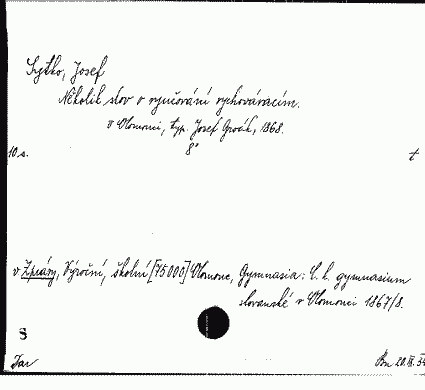 Sytko, Josef
Několik slov o vyučování vychovávacím.
v Olomouci, typ. Josef Groák, 1868.
8°
10 s. t
v Zprávy, Výroční, školní [75000] Olomouc, Gymnasia: C. k. gymnasium
slovanské v Olomouci 1867/8.
S
Jar